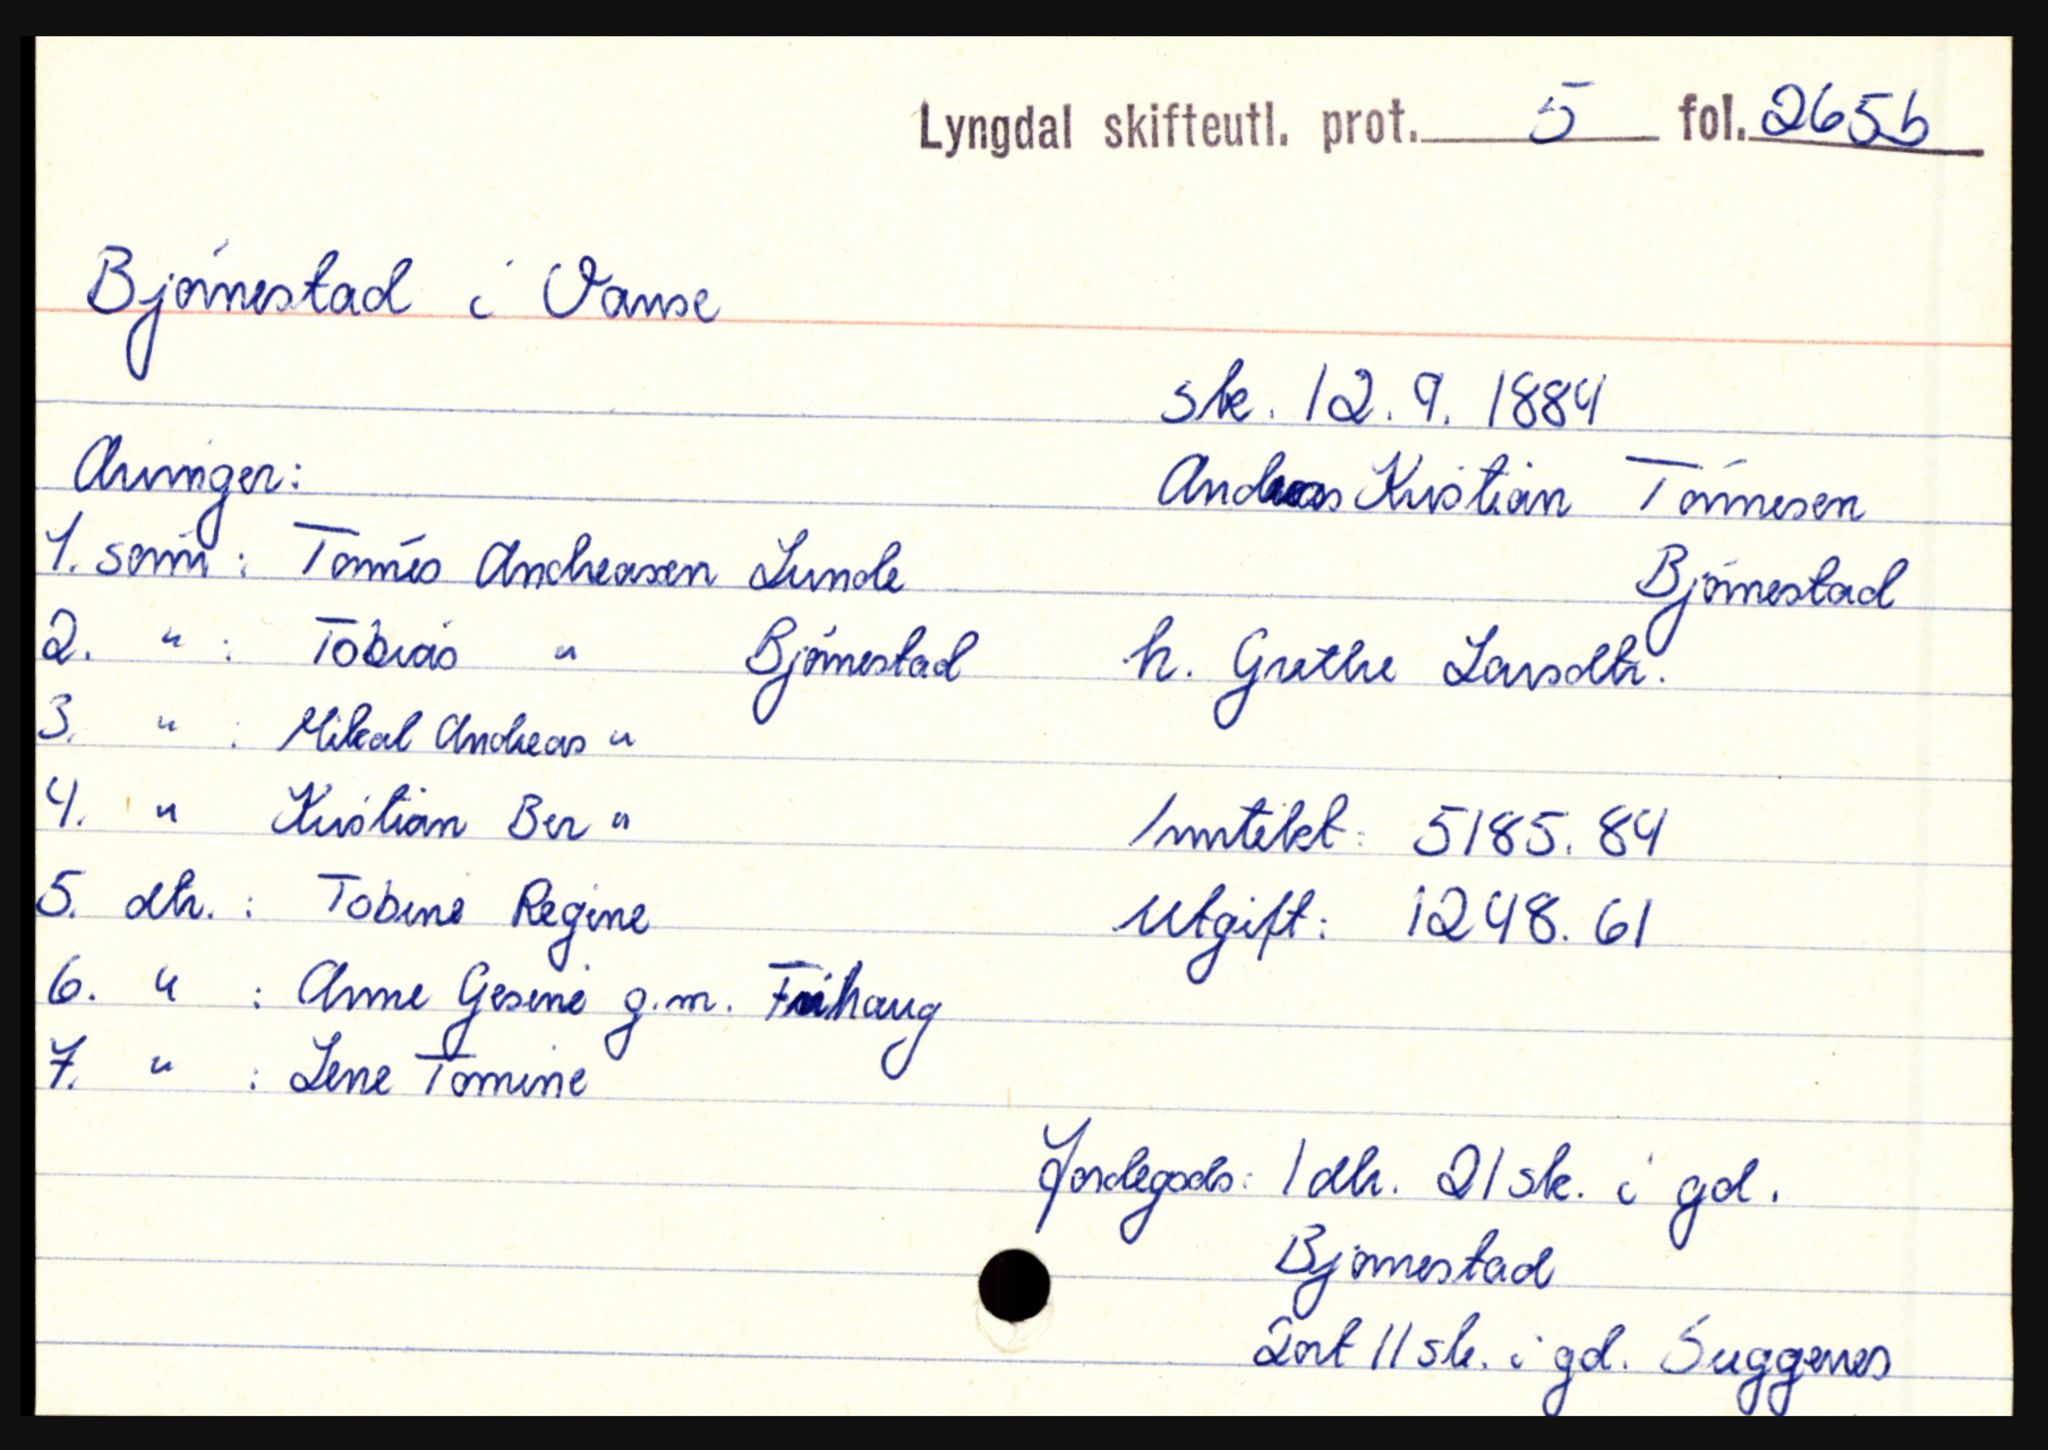 Lyngdal skifteutl. prot. 5 fol. 265b
Bjørnestad i Vanse
sk. 12.9.1884
Andreas Kristian Tønnesen
Bjørnestad
h. Grethe Larsdtr.
Arvinger:
1. sønn: Tønnes Andreasen Lunde
2. " : Tobias " Bjørnestad
3. " : Mikal Andreas "
4. " Kristian Ber "
5. dtr. : Tobine Regine
6. " : Anne Gesine g.m. Frihaug
7. " : Lene Tomine
Inntekt: 5185.84
Utgift: 1248.61
Jordegods: 1 dlr. 21 sk. i gd.
Bjørnestad
2 ort 11 sk. i gd. Suggenes